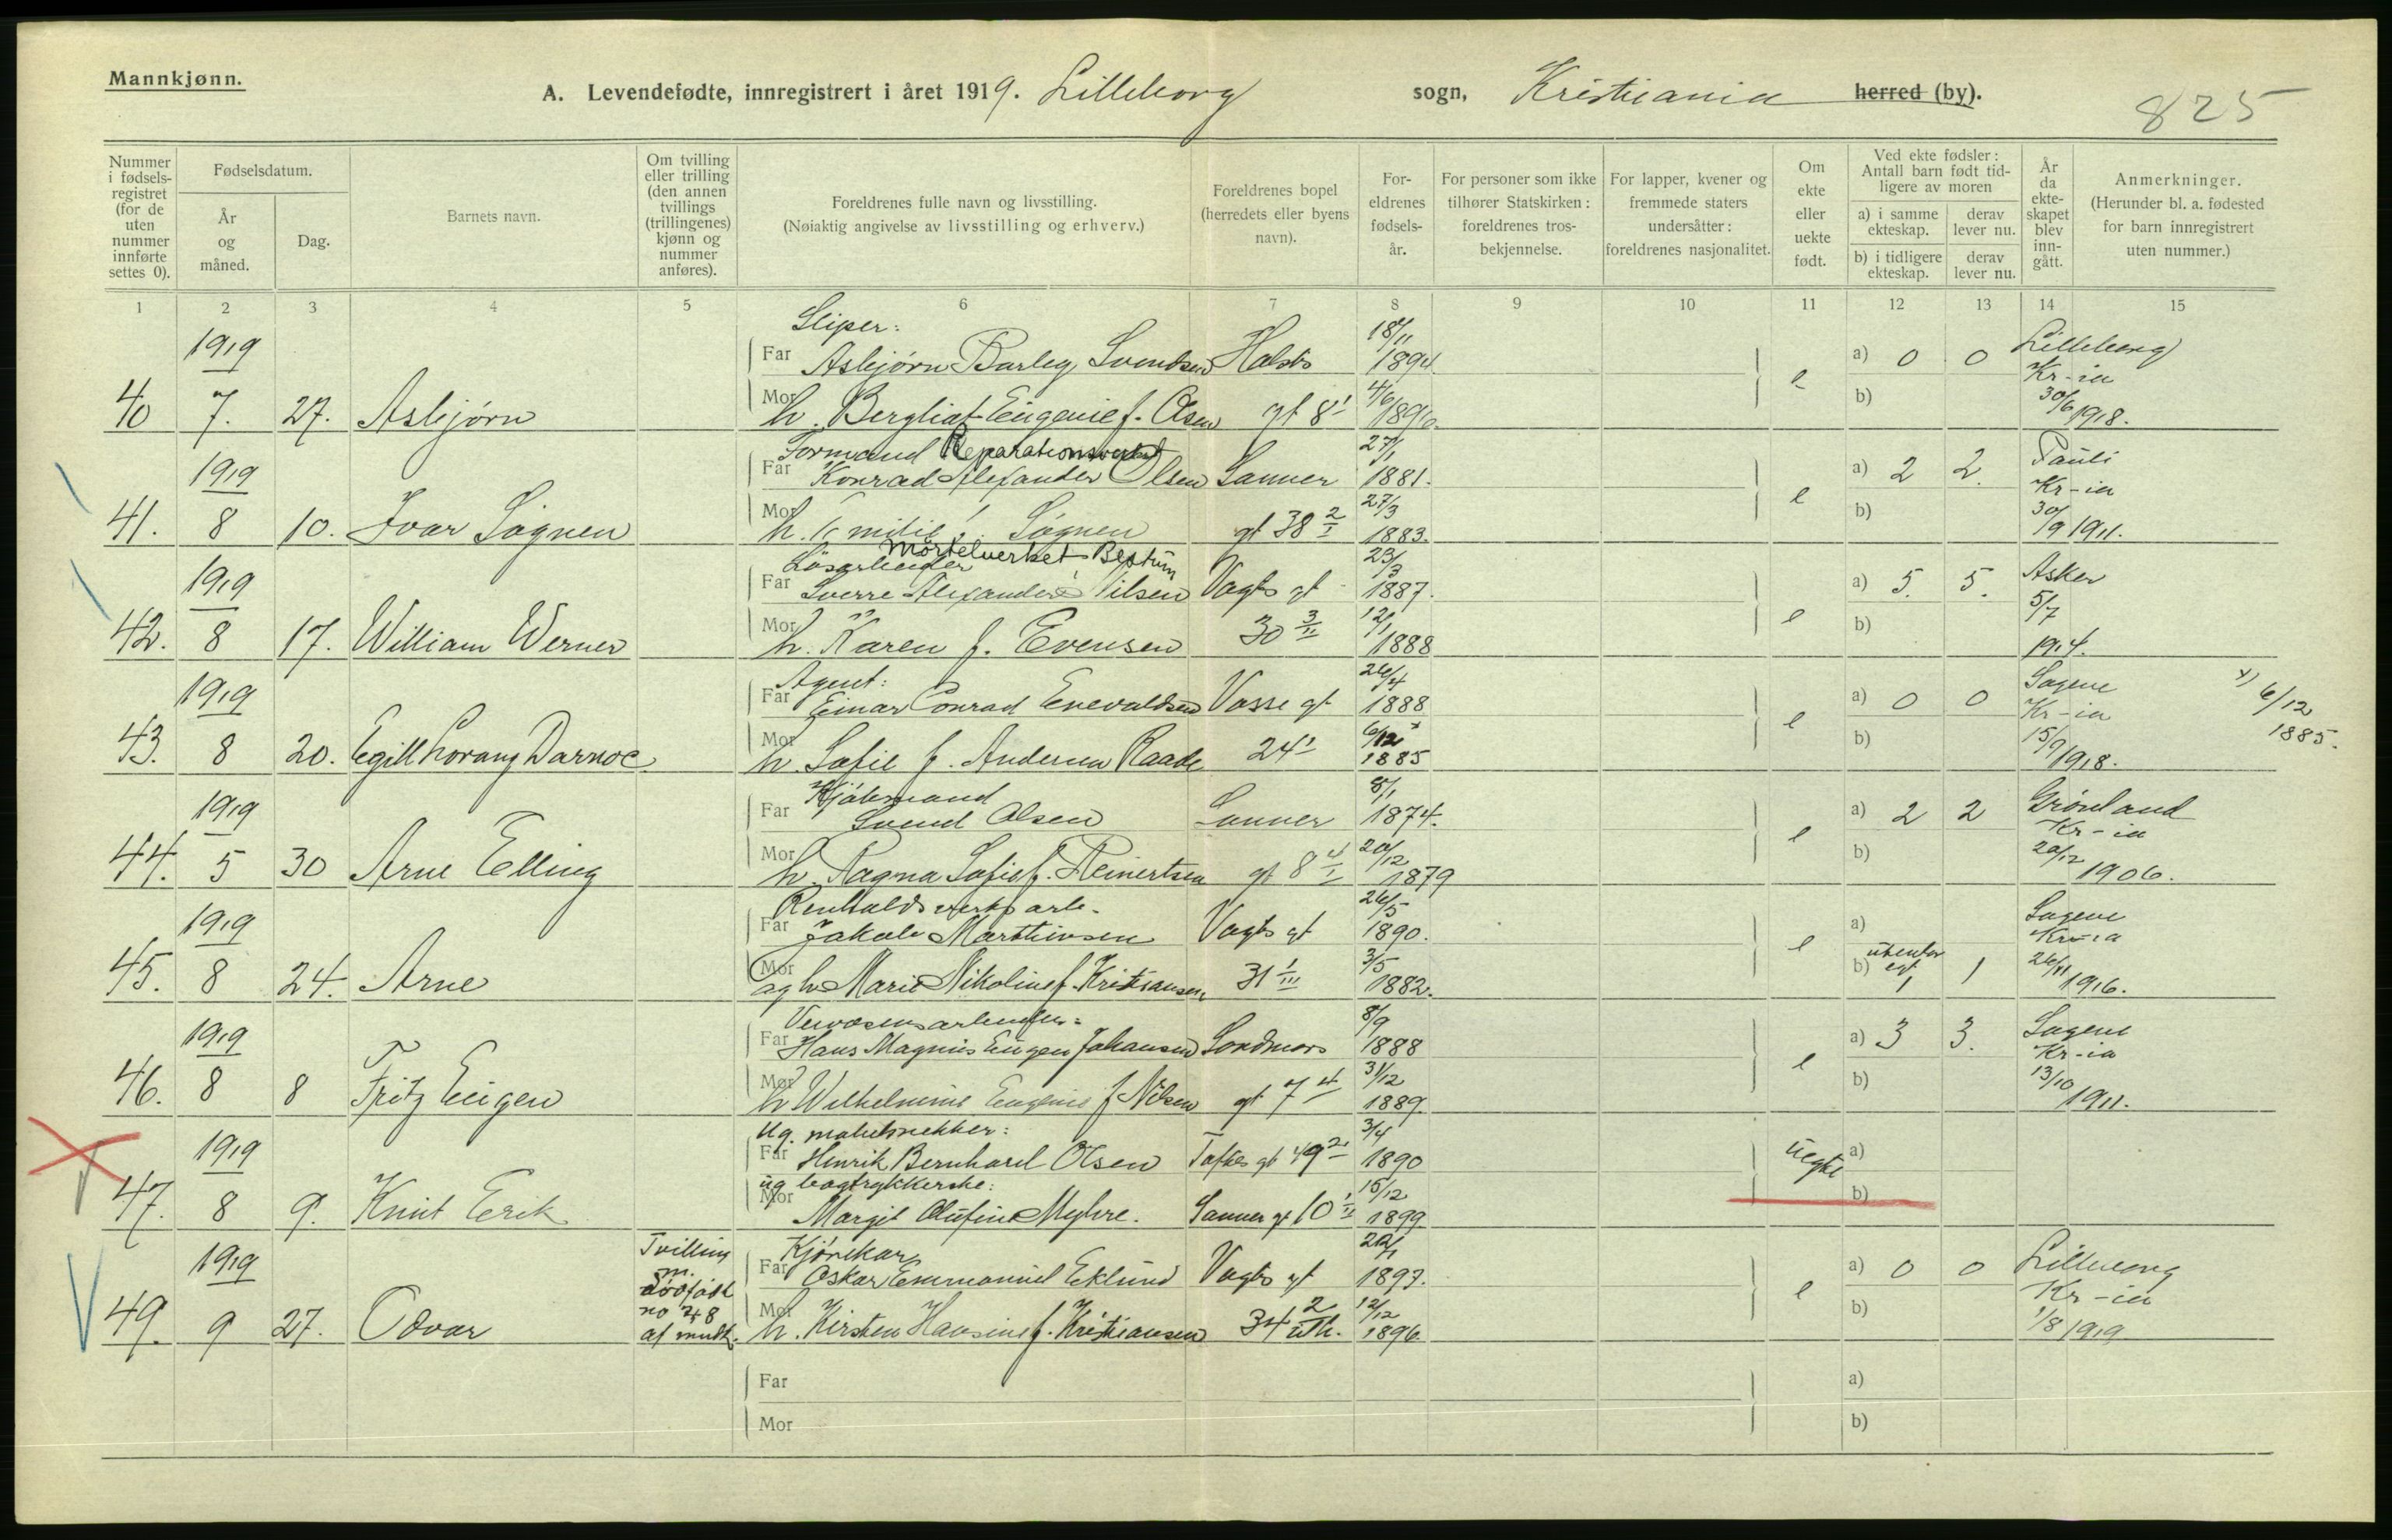 Mannkjønn.
A. Levendefødte, innregistrert i året 1919. Lilleborg sogn, Kristiania herred (by).
825
Nummer i fødsels-registret (for de uten nummer innførte settes 0).
Fødselsdatum.
År og måned.
Dag.
Barnets navn.
Om tvilling eller trilling (den annen tvillings (trillingenes) kjønn og nummer anføres).
Foreldrenes fulle navn og livsstilling.
(Nøiaktig angivelse av livsstilling og erhverv.)
Foreldrenes bopel (herredets eller byens navn).
For-eldrenes fødsels-år.
For personer som ikke tilhører Statskirken: foreldrenes tros-bekjennelse.
For lapper, kvener og fremmede staters undersåtter: foreldrenes nasjonalitet.
Om ekte eller uekte født.
Ved ekte fødsler: Antall barn født tid-ligere av moren
a) i samme ekteskap.
derav lever nu.
b) i tidligere ekteskap.
derav lever nu.
År da ekte-skapet blev inn-gått.
Anmerkninger.
(Herunder bl. a. fødested for barn innregistrert uten nummer.)
1 2 3 4 5 6 7 8 9 10 11 12 13 14 15
Sliper:
1919 Far Asbjørn Barley Svendsen Holsts 18/11 1894 a) 0 0 Lilleborg Kr-ia
40 7. 27. Asbjørn Mor h. Bergliot Eugenie f. Olsen gt 8' 4/6 1896. e b) 30/6 1918.
Formand Reparationsverkst
1919 Far Konrad Alexander Olsen Sanner 27/1 1881. a) 2 2. Pauli Kr-ia
41. 8 10. Ivar Sognen Mor h. Emilie f. Sognen gt 38 2/I 27/3 1883. e b) 30/9 1911.
Løsarbeider Mørtelverket Bestum
1919 Far Sverre Alexander Nilsen Vogts gt 23/3 1887. a) 5. 5. Asker 5/7
42. 8 17. William Werner Mor h. Karen f. Evensen 30 3/II 12/1 1888 e b) 1914.
Agent:
1919 Far Einar Conrad Enevaldsen Vosse gt 26/4 1888 a) 0 0 Sagene Kr-ia x) 6/12 1885.
43. 8 20. Egill Lorang Darnoc Mor h. Sofie f. Andersen Raade 24' 6/12 x 1885 e b) 15/9 1918.
Kjøbmand
1919 Far Svend Olsen Sanner 8/1 1874. a) 2 2 Grønland Kr-ia
44. 5 30 Arne Elling Mor h. Ragna Sofie f. Reinertsen gt 8 4/I 20/12 1879 e b) 20/12 1906.
Renholdsverks arb.
1919 Far Jakob Marthinsen Vogts gt 26/5 1890. a) Sagene Kr-ia
45. 8 24. Arne Mor og h. Marie Nikoline f. Kristiansen 31 1/III 3/5 1882. e b) utenfor egt 1 1 26/11 1916.
1919 Far Hans Magnus Eugen Johansen Sondmørs 8/9 1888 a) 3 3. Sagene Kr-ia
46. 8 8 Fritz Eugen Mor h Wilhelmine Eugenie f Nilsen gt 7 4 31/12 1889. e b) 13/10 1911.
Ug. møbelsnekker:
1919 Far Henrik Bernhard Olsen Toftes gt 49 2 3/4 1890 Uegte a)
ug bogtrykkerske:
47. 8 9. Knut Erik Mor Margit Olufine Myhre. Sanner gt 10 1/II 15/12 1899 b)
Kjørekar
1919 Tvilling m. dødfødt no 48 af mndk. Far Oskar Emmanuel Eklund Vogts gt 22/1 1897. a) 0 0 Lilleborg Kr-ia
49. 9 27. Odvar Mor h. Kirsten Hansine f. Kristiansen 34 2 uth. 12/12 1896. e b) 1/8 1919
Far a)
Mor b)